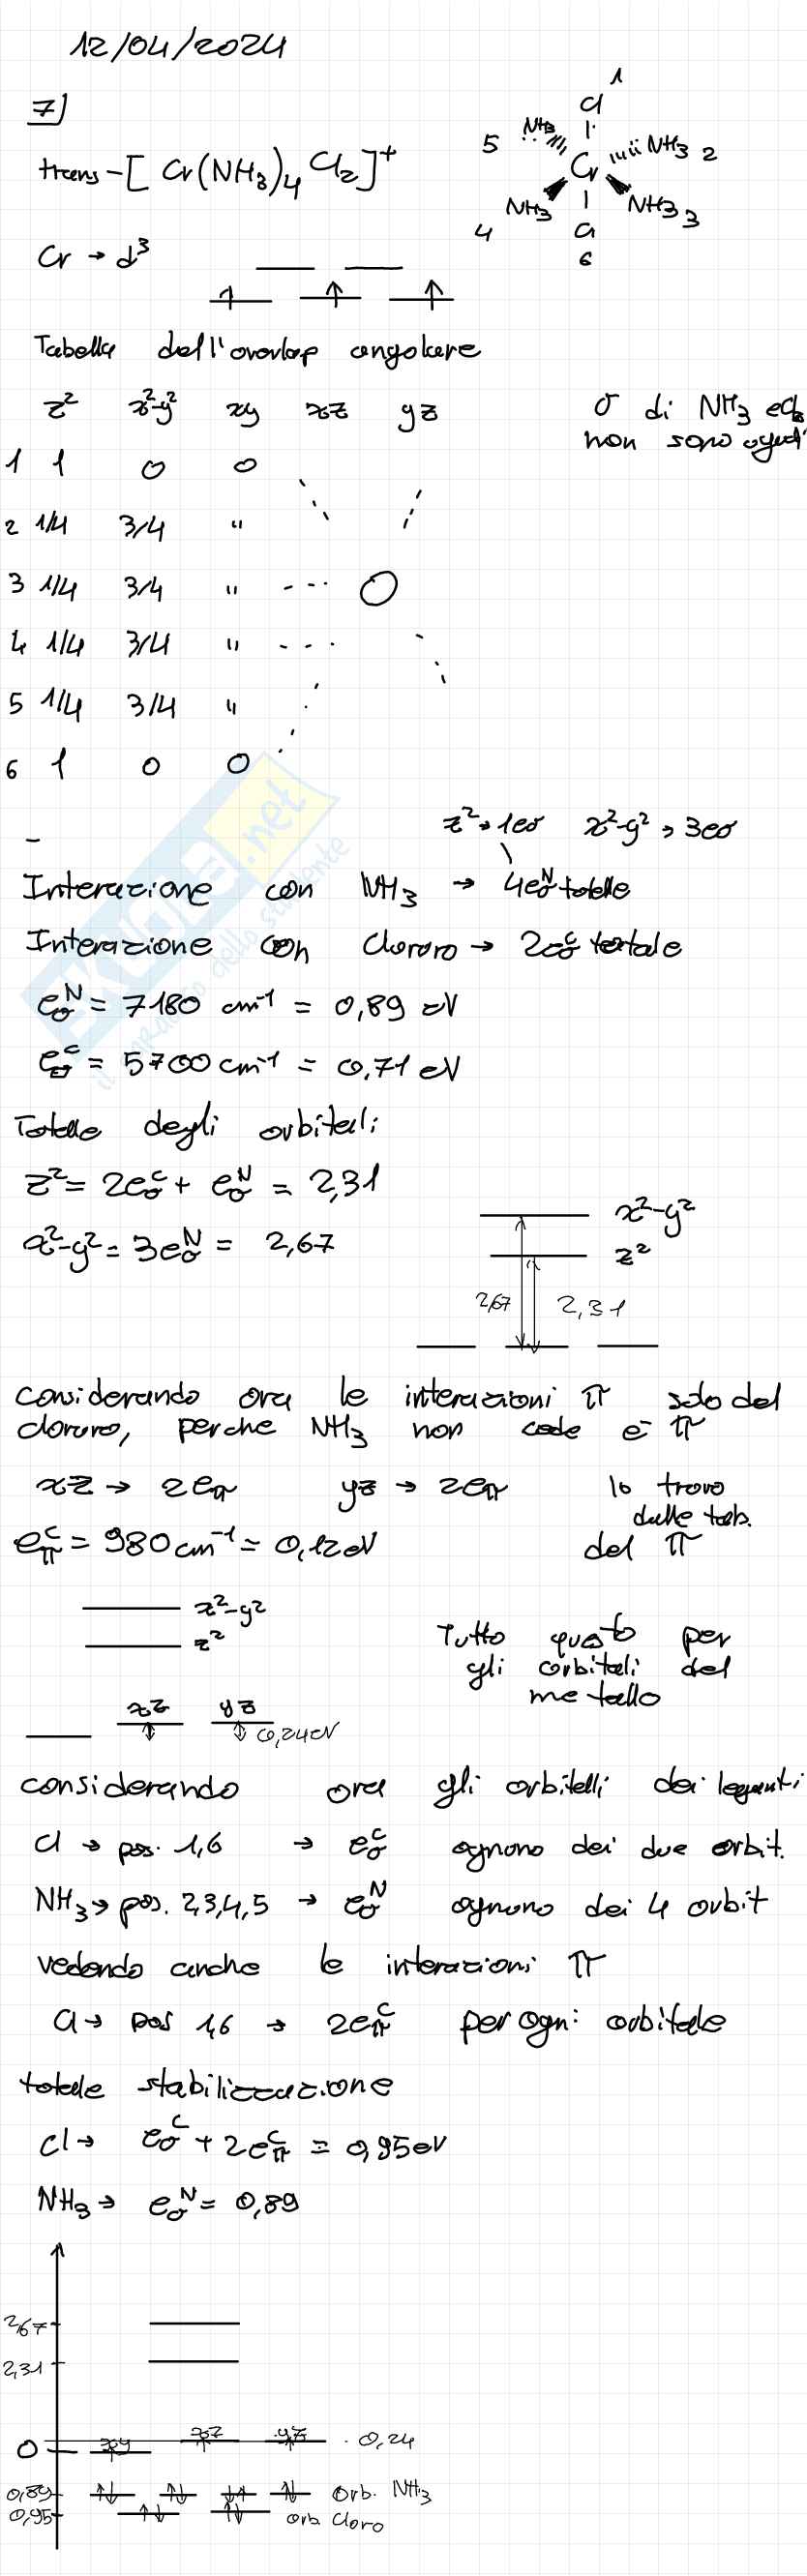 12/04/2024
7)
trans-[Cr(NH3)4Cl2]+
1
Cl
5 NH3 NH3 2
Cr
4 NH3 NH3 3
Cl
6
Cr → d³
Tabella dell'overlap angolare
z² x²-y² xy xz yz
σ di NH3 e Cl
non sono uguali
1 1 0 0
2 1/4 3/4 "
3 1/4 3/4 " 0
4 1/4 3/4 "
5 1/4 3/4 "
6 1 0 0
z² → 1eσ x²-y² → 3eσ
Interazione con NH3 → 4eσᴺ totale
Interazione con cloruro → 2eσᶜ totale
eσᴺ = 7180 cm⁻¹ = 0,89 eV
eσᶜ = 5700 cm⁻¹ = 0,71 eV
Totale degli orbitali:
z² = 2eσᶜ + eσᴺ = 2,31
x²-y² = 3eσᴺ = 2,67
x²-y²
z²
2,67 2,31
Considerando ora le interazioni π solo del
cloruro, perche NH3 non cede e⁻ π
xz → 2eπ yz → 2eπ lo trovo
dalle tab.
del π
eπᶜ = 980 cm⁻¹ = 0,12 eV
x²-y²
z²
Tutto questo per
gli orbitali del
metallo
xz yz
0,24 eV
considerando ora gli orbitelli dei leganti
Cl → pos. 1,6 → eσᶜ ognuno dei due orbit.
NH3 → pos. 2,3,4,5 → eσᴺ ognuno dei 4 orbit
vedendo anche le interazioni π
Cl → pos 1,6 → 2eπᶜ per ogni orbitale
totale stabilizzazione
Cl → eσᶜ + 2eπᶜ = 0,95 eV
NH3 → eσᴺ = 0,89
2,67
2,31
xz yz 0,24
0 xy
0,89 Orb. NH3
0,95 orb. Cloro
SKUOLA.net
il paradiso dello studente